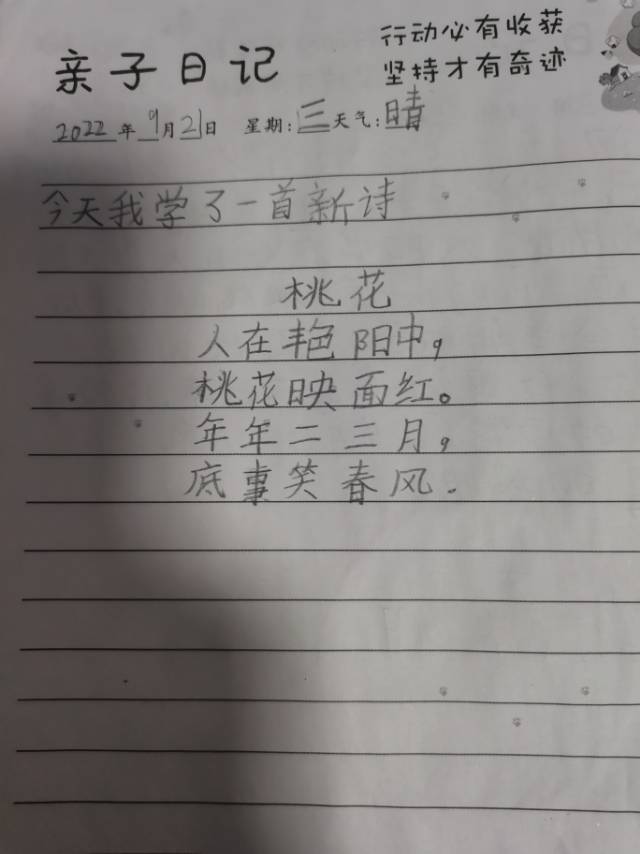 亲子日记
行动必有收获
坚持才有奇迹
2022年9月21日 星期:三天气:晴
今天我学了一首新诗
桃花
人在艳阳中,
桃花映面红。
年年二三月,
底事笑春风.